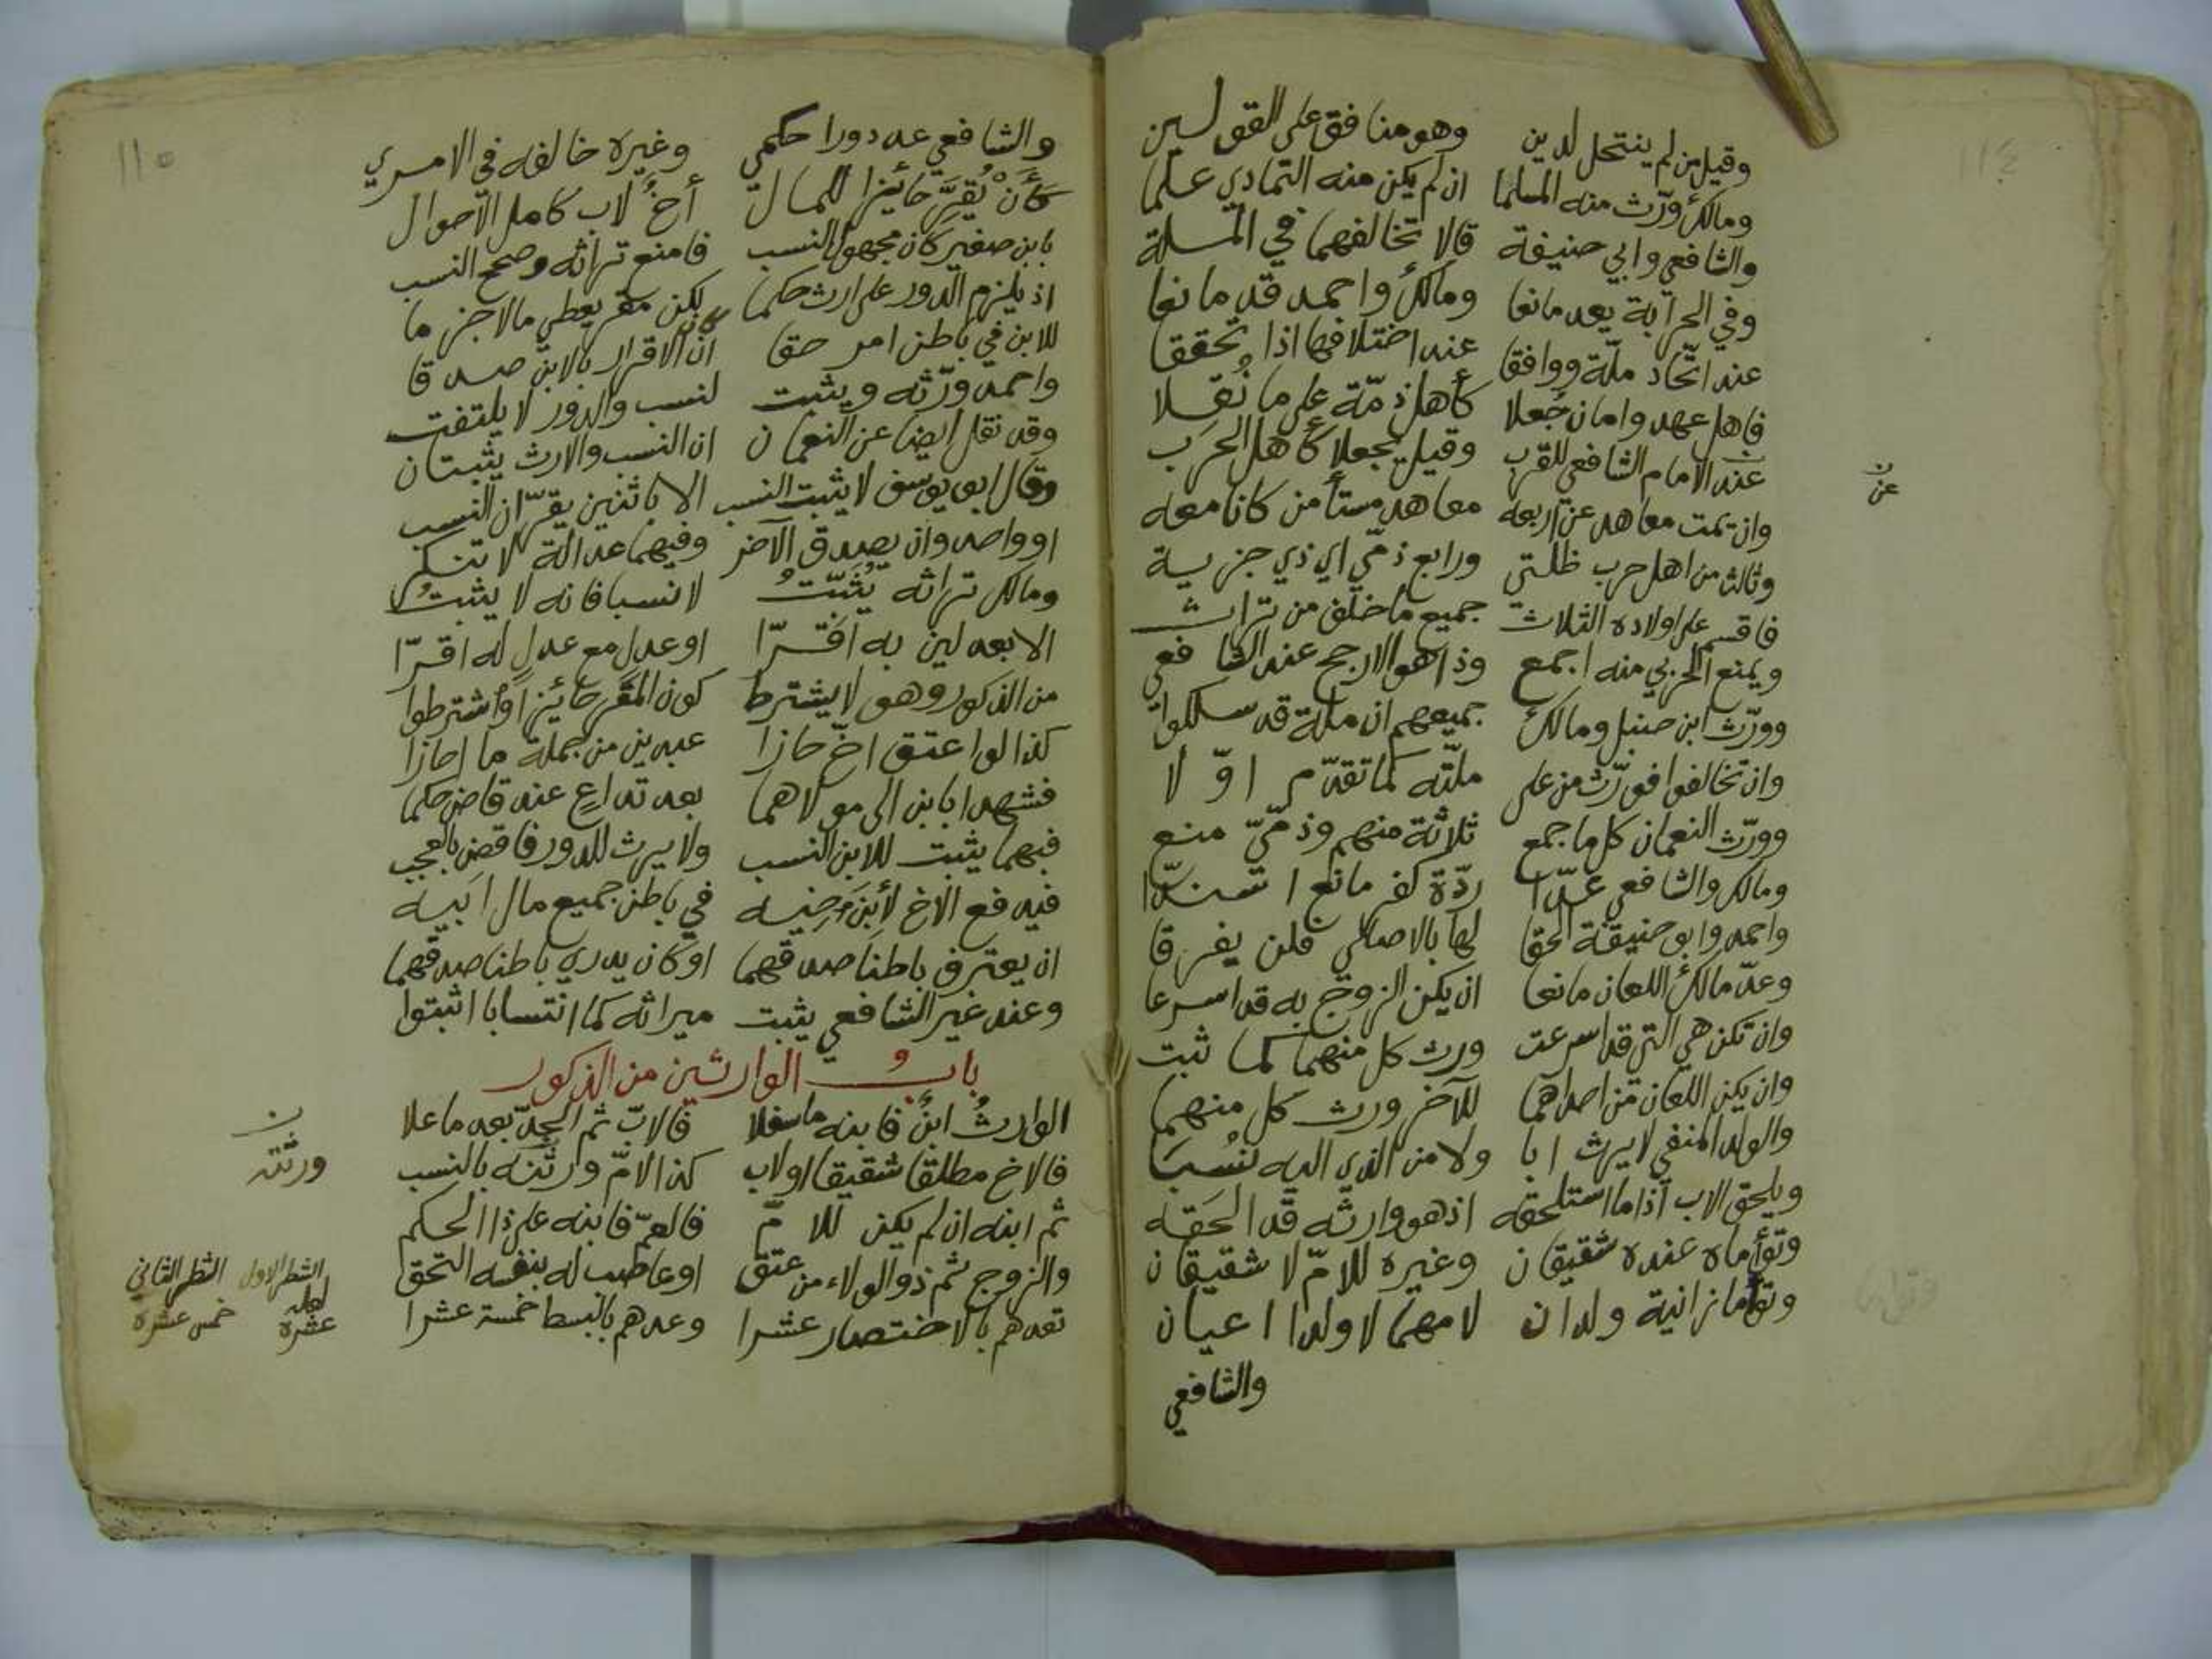 ١١٤
وقيل من لم ينتحل لدين وهو منافق على القولين
ومالك ورّث منه المسلما ان لم يكن منه التمادي علما
والشافعي وابي حنيفة قالا تخالفهما في المسلة
وفي الحرابة يعد مانعا ومالك واحمد قد مانعا
عند اتّحاد ملّة ووافقا عند اختلافها اذا تحققا
فاهل عهد وامان جُعلا كأهل ذمّة على ما نُقلا
عند الامام الشافعي للقرب وقيل يجعلا كأهل الحرب
عن
وان يمت معاهد عن اربعه معاهد مستأمن كانا معه
وثالث من اهل حرب ورابع ذمّي اي ذي جزية
فاقسم على اولاده الثلاث جميع ما خلّف من تراث
ويمنع الحربي منه اجمع وذا هو الارجح عند الشافعي
وورّث ابن حنبل ومالك جميعهم ان ملة قد سلكوا
وان تخالفوا فورّث من على ملّته كما تقدّم اوّلا
وورّث النعمان كل ما جمع ثلاثة منهم وذمّيّ منع
ومالك والشافعي عدّا ردّة كفر مانعا
واحمد وابو حنيفة الحقا لها بالاصلي فلن يفرقا
وعدّ مالك اللعان مانعا ان يكن الزوج به قد اسرعا
وان تكن هي التي قد اسرعت ورث كل منهما كما ثبت
وان يكن اللعان من احداهما للآخر ورث كل منهما
والولد المنفي لا يرث ابا ولا من الذي اليه نُسبا
ويلحق الاب اذا ما استلحقه اذ هو وارثه قد الحقه
وتوأماه عنده شقيقان وغيره للامّ لا شقيقان
وتوأما زانية ولدان لامهما لا ولدا اعيان
والشافعي
١١٥
والشافعي عد دورا حكمي وغيره خالفه في الامري
كأن يُقرّ حائزا للمال أخُ لاب كامل الاحوال
بابن صغير كان مجهول النسب فامنع تراثه وصحح النسب
اذ يلزم الدور على ارث حكما لكن مقر يعطي مالا جزما
للابن في باطن امر حقا ان كان الاقرار بالابن صدقا
واحمد ورّثه ويثبت لنسب والدور لا يلتفت
وقد نقل ايضا عن النعمان ان النسب والارث يثبتان
وقال ابو يوسف لا يثبت النسب الا باثنين يقرّان النسب
او واحد وان يصدق الآخر وفيهما عدالة لا تنكر
ومالك تراثه يُثبّتُ لا نسبا فانه لا يثبتُ
الا بعدلين به اقرّا او عدل مع عدل له اقرّا
من الذكور وهو لا يشترط كون المقر حائزا واشترطوا
كذا لو اعتق اخ حازا عبدين من جملة ما احازا
فشهدا بابن الى مولاهما بعد تداع عند قاض حكما
فبهما يثبت للابن النسب ولا يرث للدور فاقض بالعجب
فيدفع الاخ لأبن اخيه في باطن جميع مال ابيه
ان يعترف باطنا صدقهما او كان يدري باطنا صدقهما
وعند غير الشافعي يثبت ميراثه كما انتسابا اثبتوا
بابُ الوارثين من الذكور
الوارثُ ابنٌ فابنه ما سفلا فالابّ ثم الجدّ بعد ما علا
فالاخ مطلقا شقيقا او لاب كذا لامّ ورثته بالنسب
ورثته
ثم ابنه ان لم يكن للامّ فالعمّ فابنه على ذا الحكم
والزوج ثم ذو الولاء من عتق او عاصب له بنفسه التحق
تعدهم بالاختصار عشرا وعدهم بالبسط خمسة عشرا
الشطر الاول الشطر الثاني
لعله
عشرة خمس عشرة